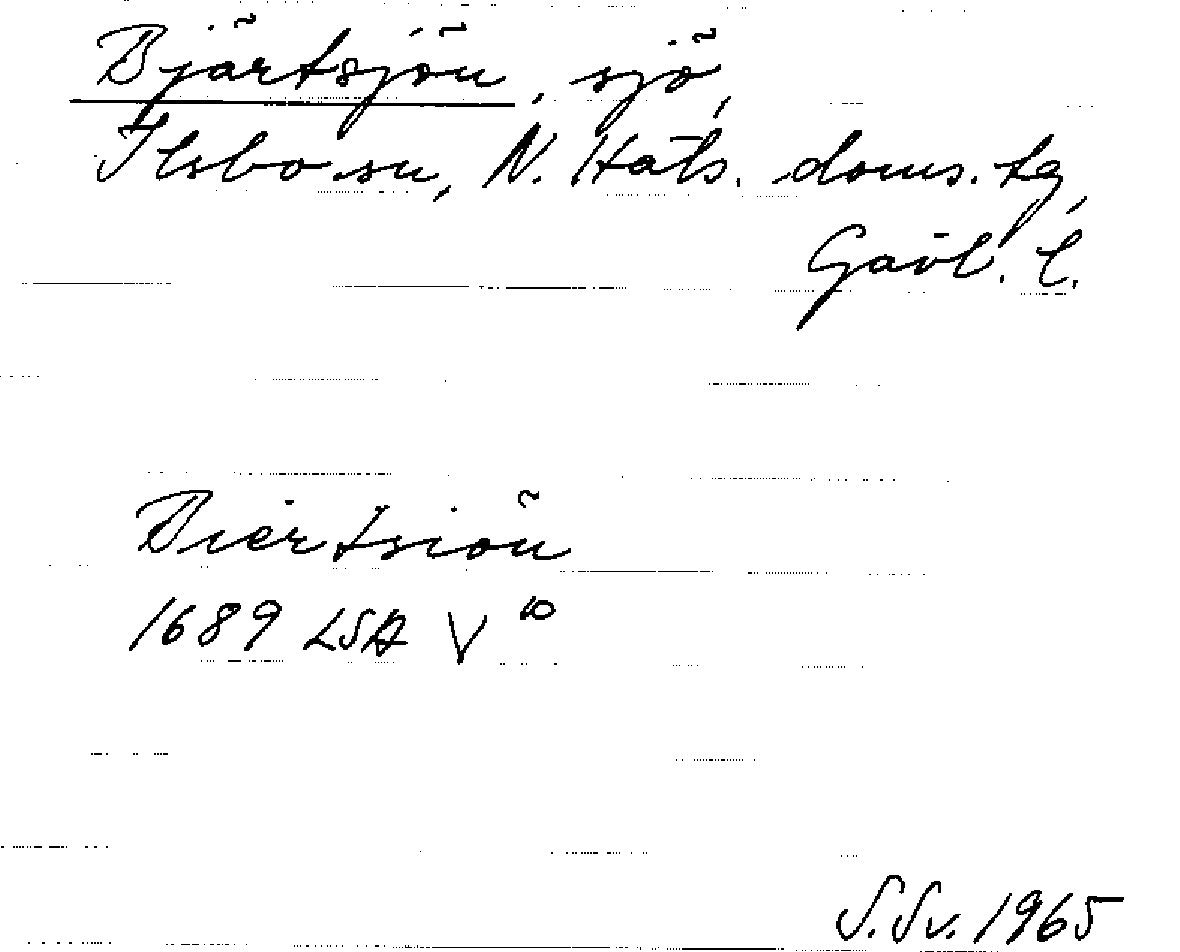 Bjärtsjön, sjö,
Ilsbo sn, N. Häls. doms. tg,
Gävl. l.
Biertsiön
1689 LSA V 10
S. Sv. 1965